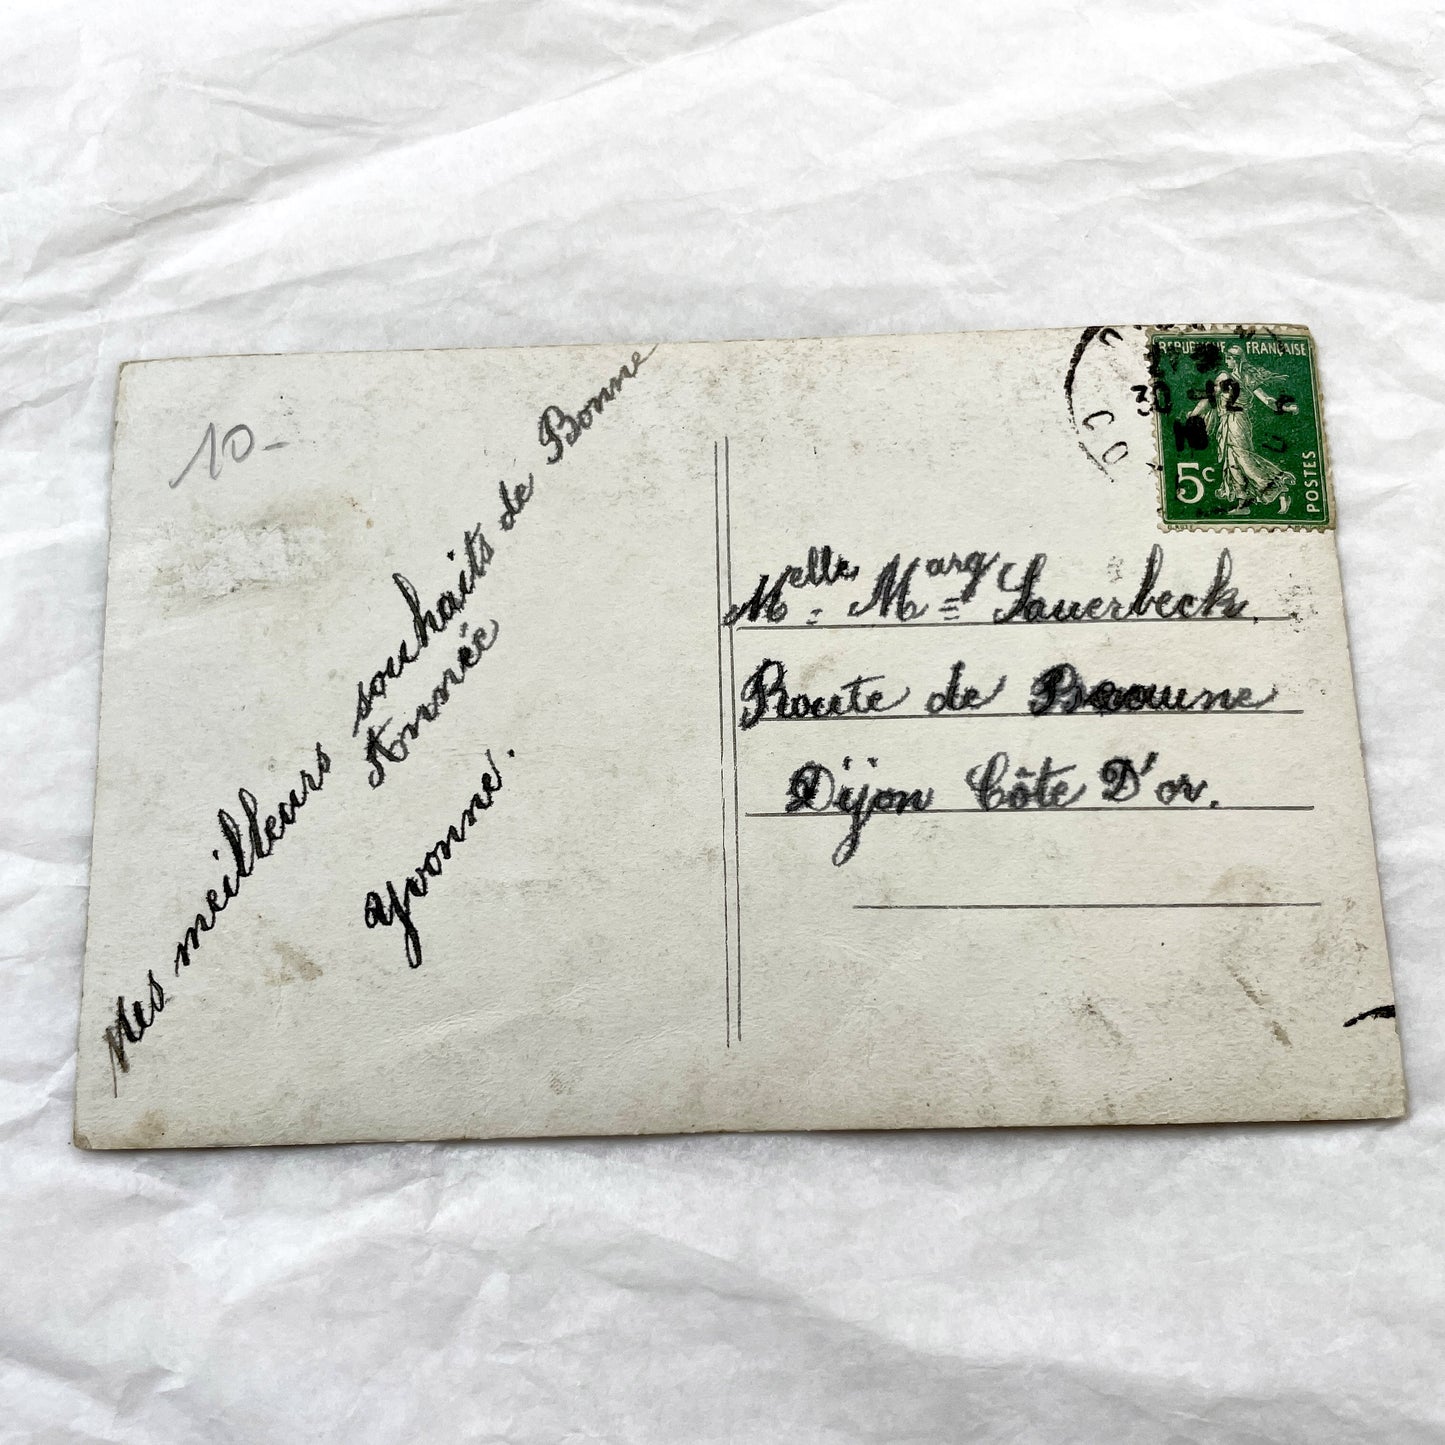 10-
Mes meilleurs souhaits de Bonne
Année
Yvonne.
REPUBLIQUE FRANÇAISE
30-12
5c
POSTES
Melle = Marg = Sauerbeck.
Route de Beaune
Dijon Côte D'or.